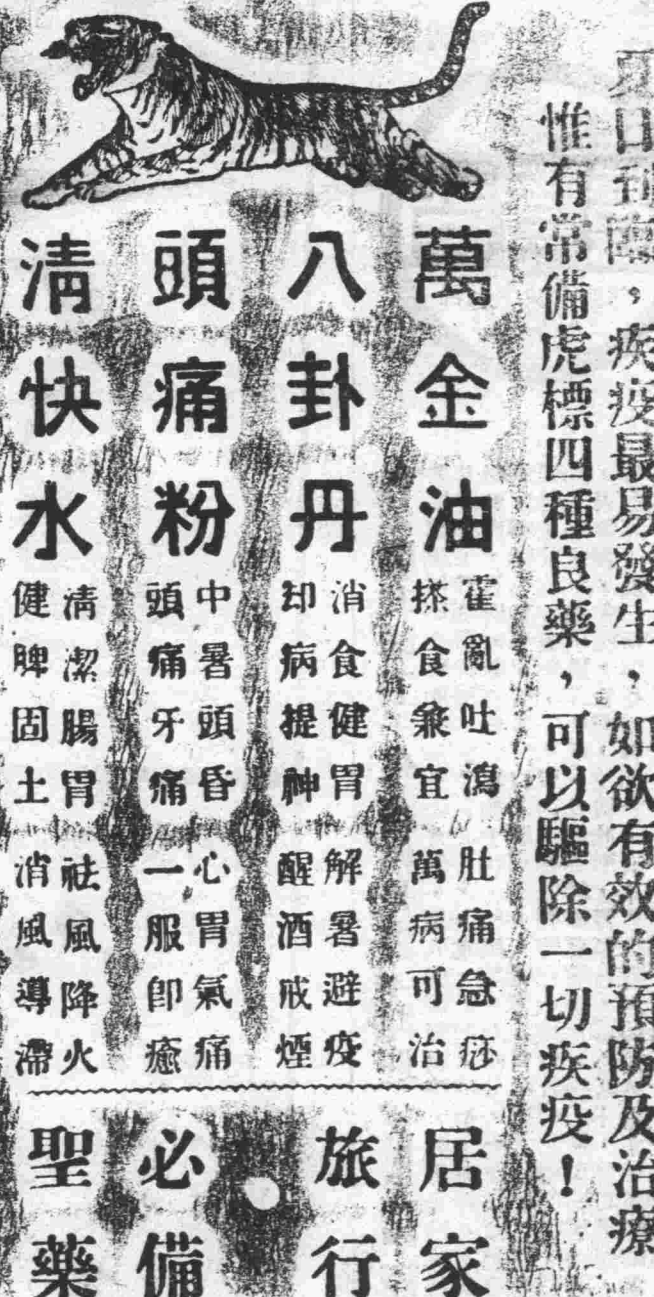 日到臨，疾疫最易發生，如欲有效的預防及治療
惟有常備虎標四種良藥，可以驅除一切疾疫！
萬金油
霍亂吐瀉 肚痛急痧
搽食兼宜 萬病可治
八卦丹
消食健胃 解暑避疫
却病提神 醒酒戒煙
頭痛粉
中暑頭昏 心胃氣痛
頭痛牙痛 一服即癒
清快水
清潔腸胃 祛風降火
健脾固土 消風導滯
居家
旅行
必備
聖藥